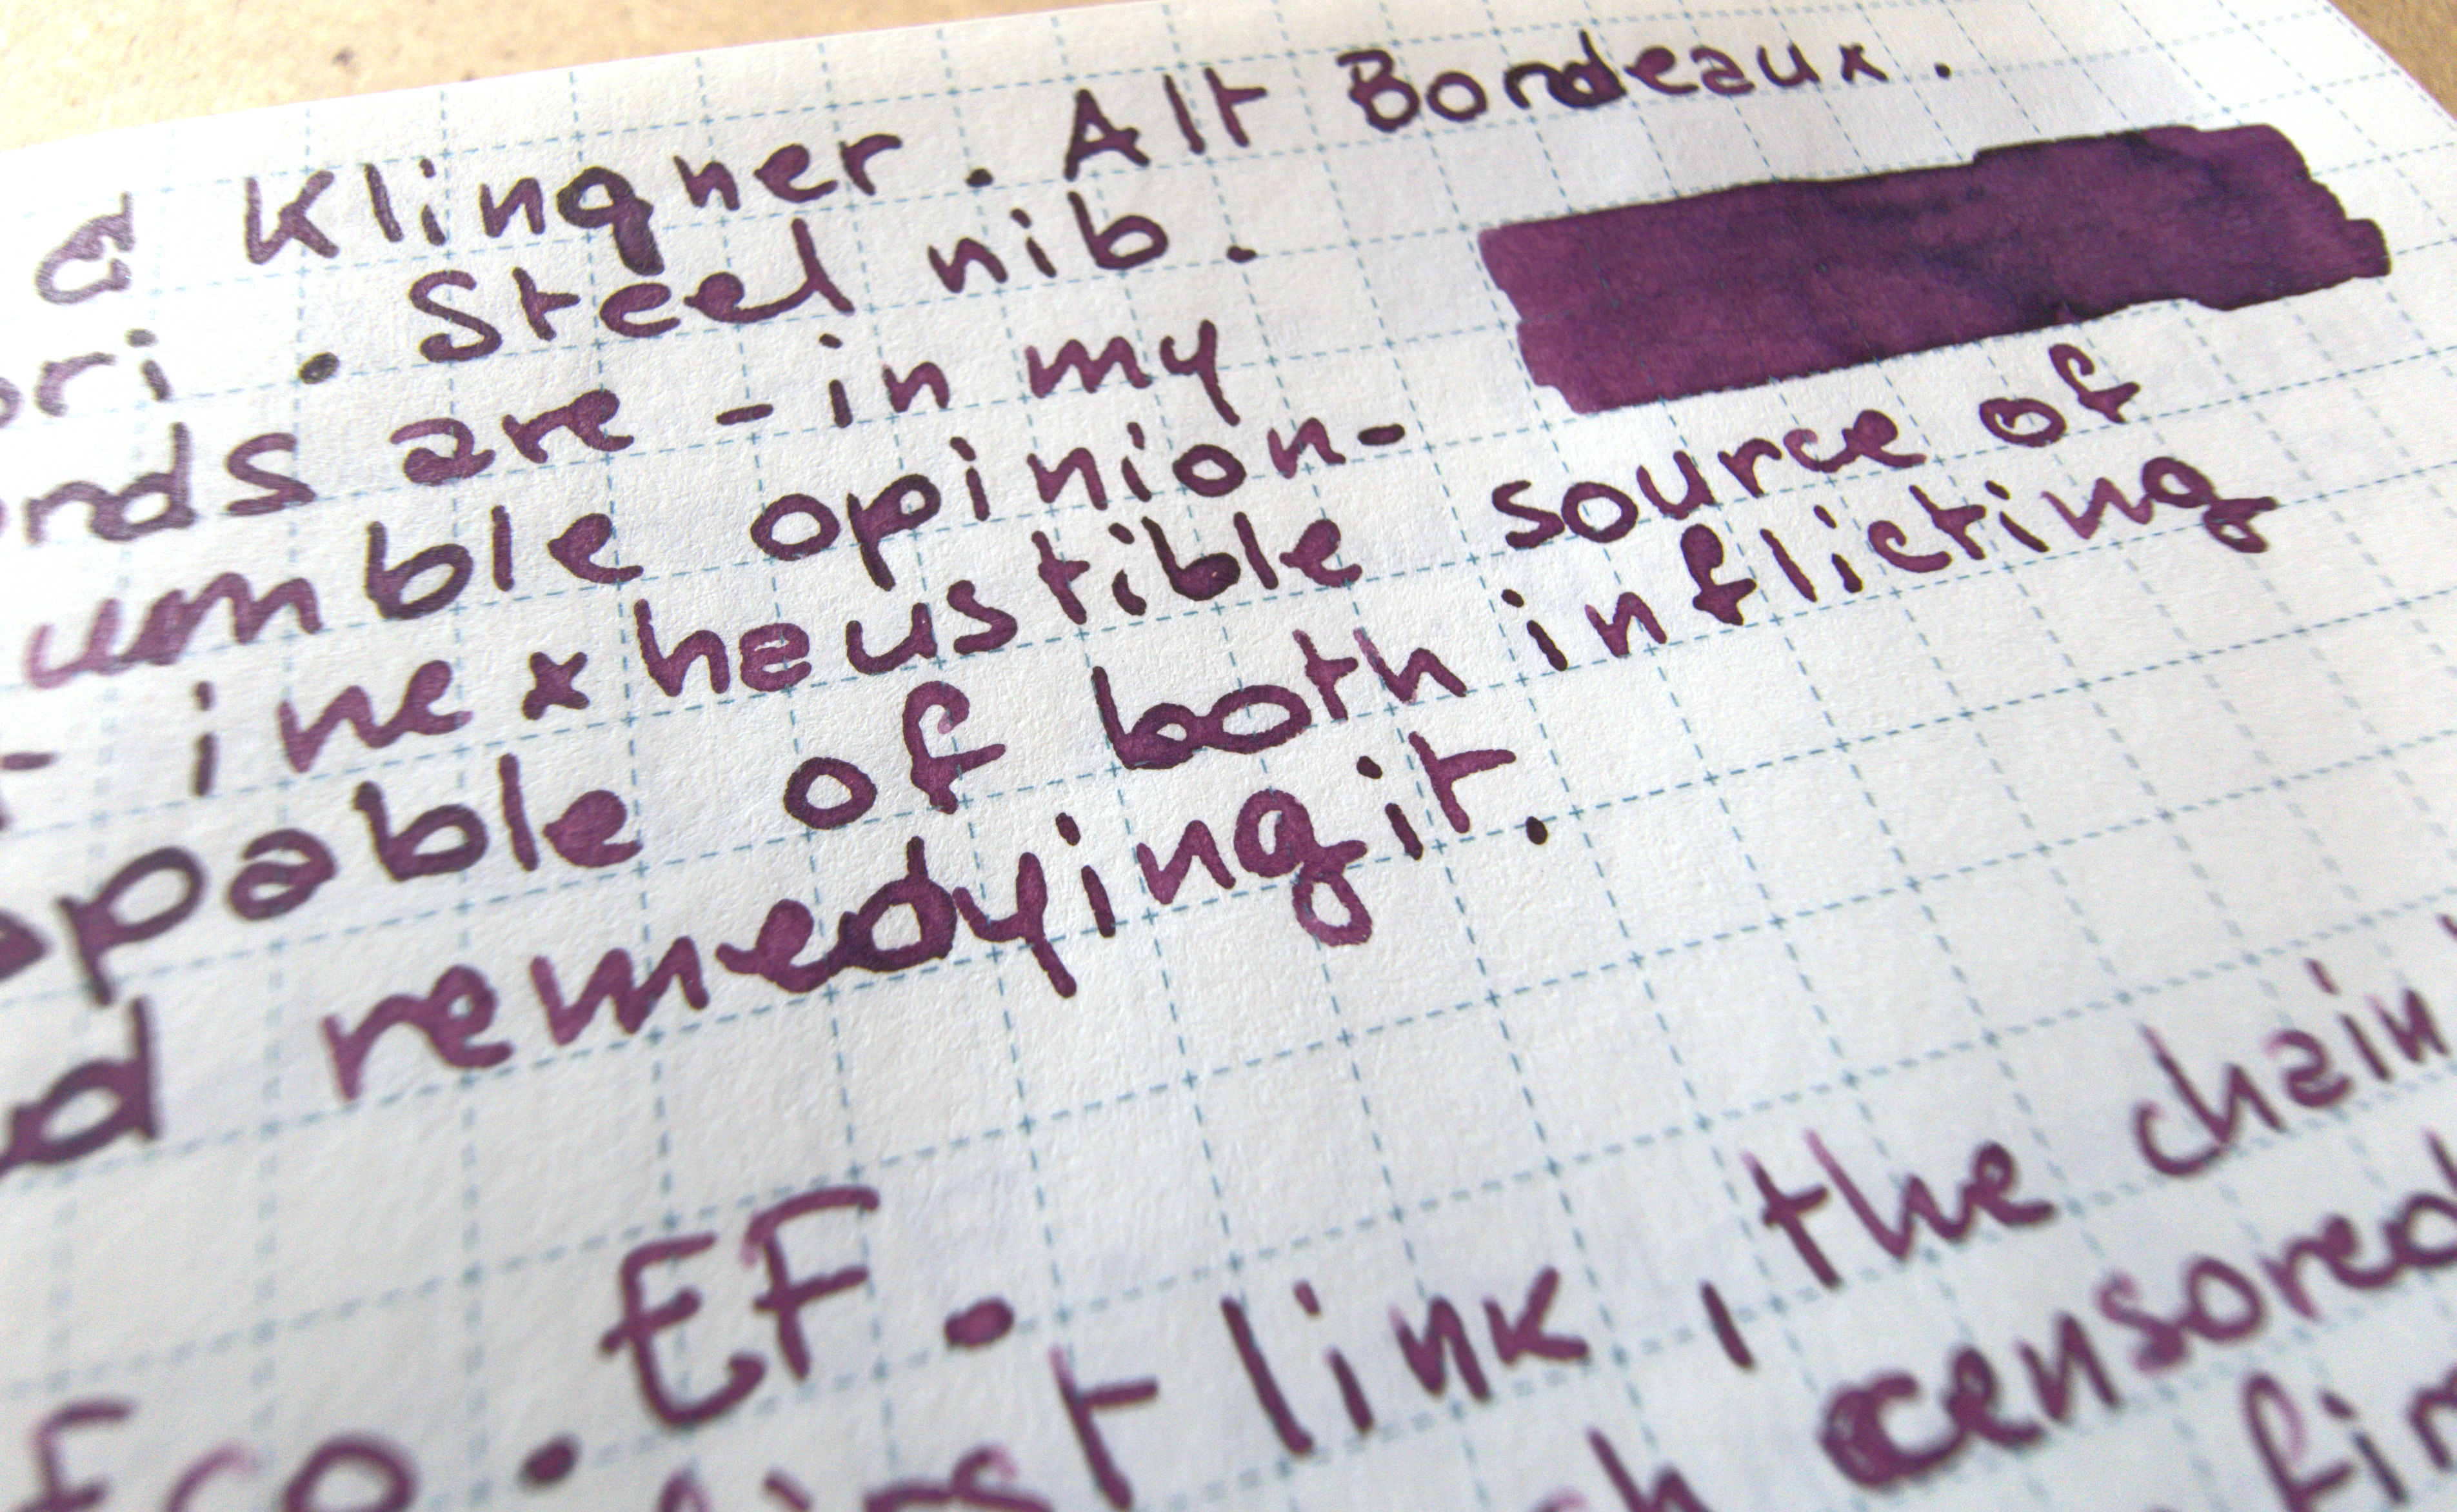 & Klingner. Alt Bordeaux.
ori. Steel nib.
ords are - in my
umble opinion-
- inexhaustible source of
apable of both inflicting
d remedying it.
Eco. EF.
first link, the chain
h censored
fir